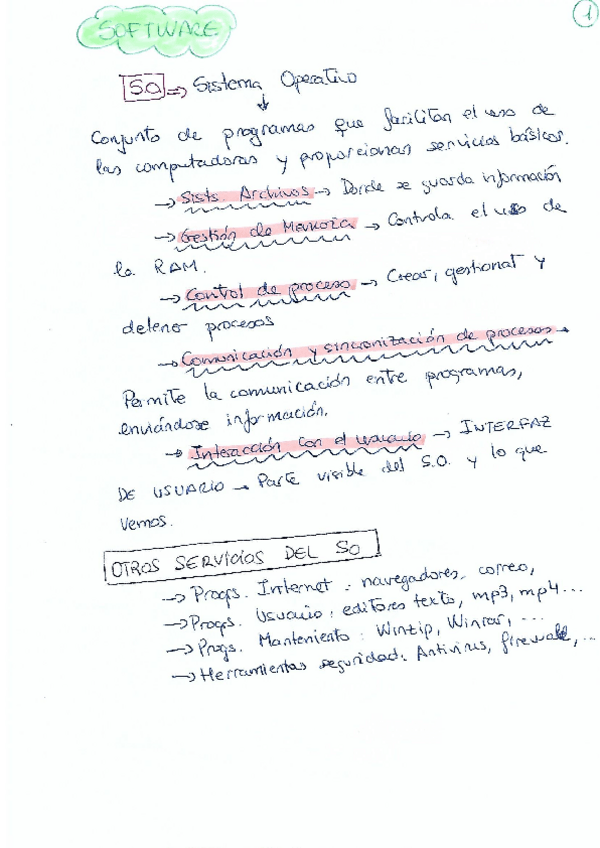 1
SOFTWARE
S.O. => Sistema Operativo
↓
Conjunto de programas que facilitan el uso de
las computadoras y proporcionan servicios básicos.
→ Sists. Archivos → Donde se guarda información
→ Gestión de Memoria → Controla el uso de
la RAM.
→ Control de proceso → Crear, gestionar y
detener procesos
→ Comunicación y sincronización de procesos →
Permite la comunicación entre programas,
enviándose información.
→ Interacción con el usuario → INTERFAZ
DE USUARIO → Parte visible del S.O. y lo que
vemos.
OTROS SERVICIOS DEL SO
→ Progs. Internet: navegadores, correo,
→ Progs. Usuario: editores texto, mp3, mp4...
→ Progs. Manteniento: Winzip, Winrar, ...
→ Herramientas seguridad: Antivirus, firewall, ...